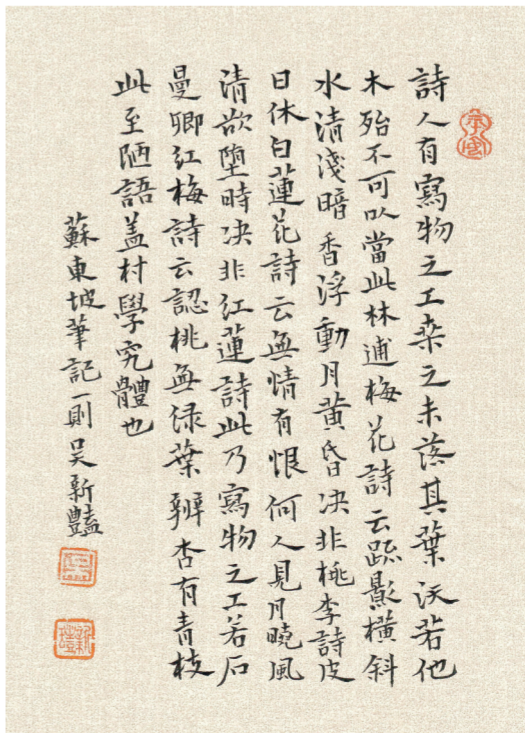 詩人有寫物之工桒之未落其葉沃若他
木殆不可以當此林逋梅花詩云疏影橫斜
水清淺暗香浮動月黃昏决非桃李詩皮
日休白蓮花詩云無情有恨何人見月曉風
清欲墮時决非紅蓮詩此乃寫物之工若石
曼卿紅梅詩云認桃無緑葉辨杏有青枝
此至陋語盖村學究體也
蘇東坡筆記一則吴新豔